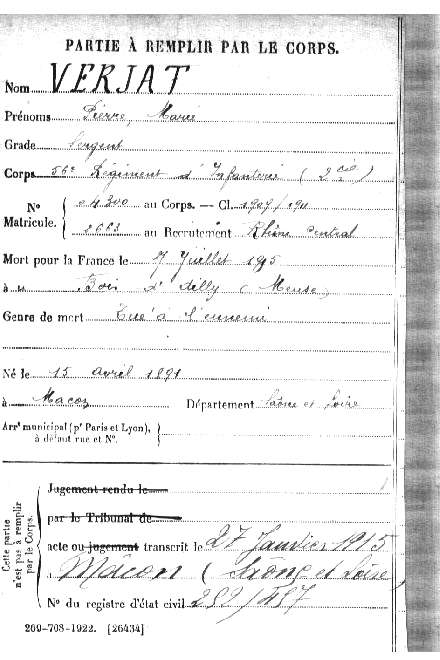 PARTIE À REMPLIR PAR LE CORPS.
Nom VERJAT
Prénoms Pierre, Marie
Grade Sergent
Corps 56e Régiment d'Infanterie ( 2 cie )
No Matricule. 04300 au Corps. — Cl. 1909/1911
2663 au Recrutement Rhône Central
Mort pour la France le 7 Juillet 1915
à Bois d'Ailly ( Meuse )
Genre de mort Tué à l'ennemi
Né le 15 avril 1891
à Macon Département Saône et Loire
Arrt municipal (pr Paris et Lyon),
à défaut rue et No.
Cette partie
n'est pas à remplir
par le Corps.
Jugement rendu le
par le Tribunal de
acte ou jugement transcrit le 27 Janvier 1915
Mâcon ( Saône et Loire )
No du registre d'état civil 292/487
269-708-1922. [26434]